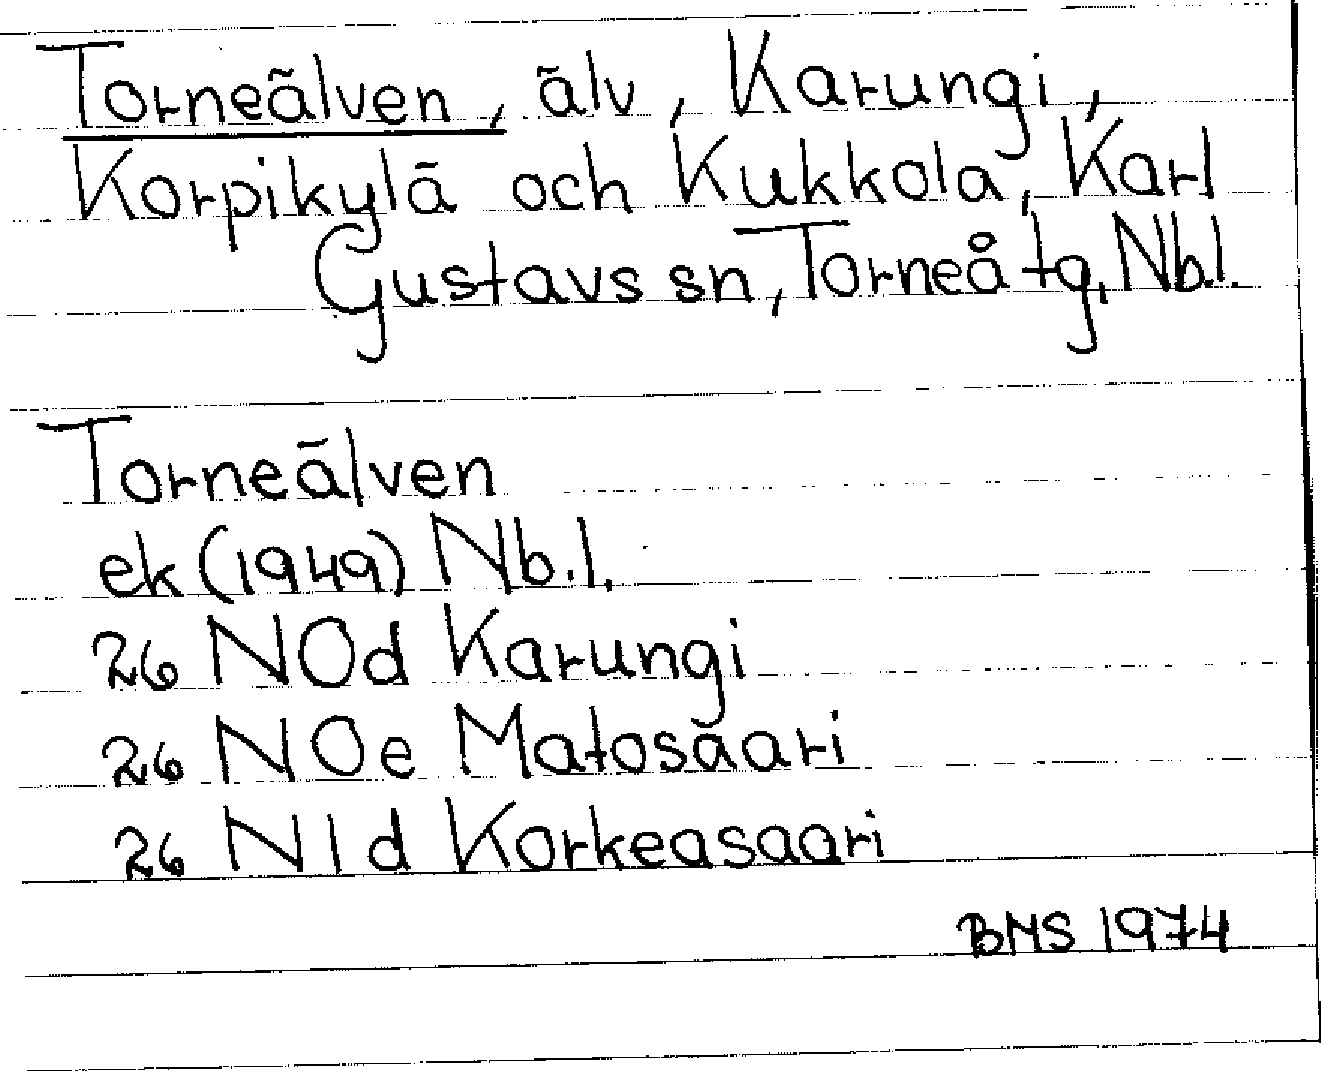 Torneälven, älv, Karungi,
Korpikylä och Kukkola, Karl
Gustavs sn, Torneå tg, Nb.l.
Torneälven
ek (1949) Nb.l.
26 NOd Karungi
26 NOe Matosaari
26 NId Korkeasaari
BMS 1974